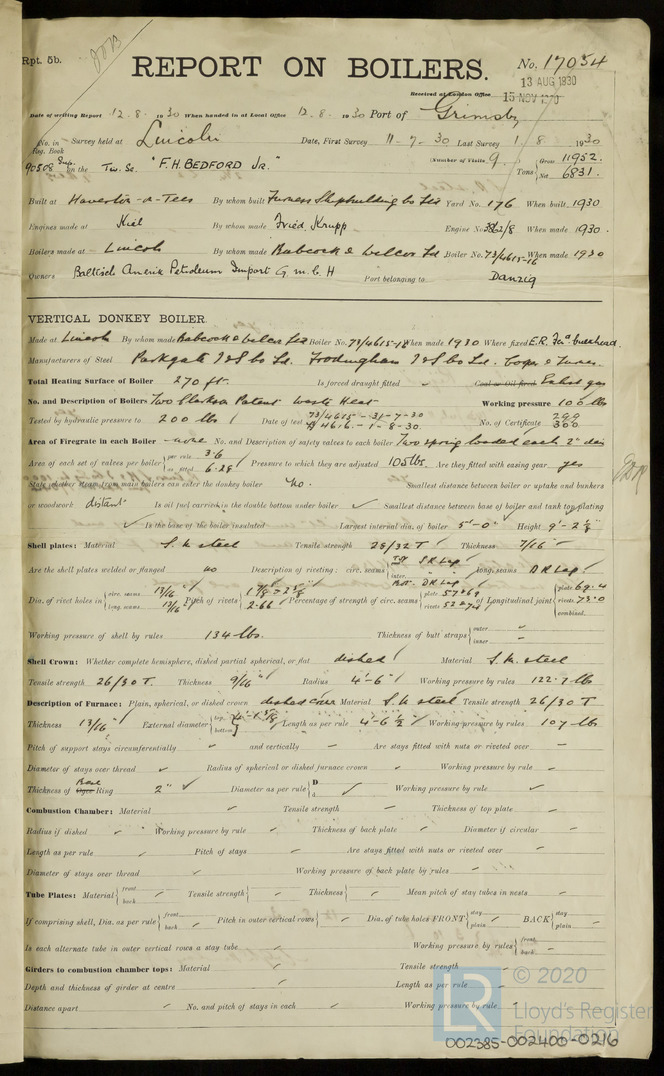 Rpt. 5b.
REPORT ON BOILERS.
No. 17054
13 AUG 1930
Received at London Office 15 NOV 1930
Date of writing Report 12.8.1930 When handed in at Local Office 12.8.1930 Port of Grimsby
No. in Reg. Book Survey held at Lincoln Date, First Survey 11-7-30 Last Survey 1.8.1930
90508 Sup. on the Tw. Sc. "F.H. BEDFORD Jr." (Number of Visits 9) Tons Gross 11952. Net 6831.
Built at Haverton-o-Tees By whom built Furness Shipbuilding Co Ltd Yard No. 176 When built 1930
Engines made at Kiel By whom made Fried Krupp Engine No. When made 1930.
Boilers made at Lincoln By whom made Babcock & Wilcox Ld Boiler No. 73/4615-16 When made 1930
Owners Baltisch Amerik Petroleum Import G.m.b.H Port belonging to Danzig
VERTICAL DONKEY BOILER.
Made at Lincoln By whom made Babcock & Wilcox Ltd Boiler No. 73/4615-16 When made 1930 Where fixed E.R. bulkhead.
Manufacturers of Steel Parkgate I & S Co Ld. Frodingham I & S Co Ld.
Total Heating Surface of Boiler 270 ft. Is forced draught fitted Coal or Oil fired Exhst gas
No. and Description of Boilers Two Clarkson Patent Waste Heat Working pressure 100 lbs
Tested by hydraulic pressure to 200 lbs Date of test 73/4615 - 31-7-30 4616 - 1-8-30. No. of Certificate 299 300
Area of Firegrate in each Boiler none No. and Description of safety valves to each boiler Two spring loaded each 2" dia
Area of each set of valves per boiler per rule 3.6 as fitted 6.28 Pressure to which they are adjusted 105 lbs. Are they fitted with easing gear yes
State whether steam from main boilers can enter the donkey boiler no. Smallest distance between boiler or uptake and bunkers
or woodwork distant Is oil fuel carried in the double bottom under boiler Smallest distance between base of boiler and tank top plating
Is the base of the boiler insulated Largest internal dia. of boiler 5'-0" Height 9'-2 1/8"
Shell plates: Material S.M. steel Tensile strength 28/32 T Thickness 7/16"
Are the shell plates welded or flanged no Description of riveting: circ. seams Top S R Lap inter. Bot. D R Lap long. seams D R Lap
Dia. of rivet holes in circ. seams 13/16" long. seams 13/16" Pitch of rivets 2.66 Percentage of strength of circ. seams plate rivets Longitudinal joint plate 69.4 rivets 73.0 combined
Working pressure of shell by rules 134 lbs. Thickness of butt straps outer inner
Shell Crown: Whether complete hemisphere, dished partial spherical, or flat dished Material S.M. steel
Tensile strength 26/30 T Thickness 9/16" Radius 4'-6" Working pressure by rules 122.7 lb
Description of Furnace: Plain, spherical, or dished crown dished cover Material S.M. steel Tensile strength 26/30 T
Thickness 13/16" External diameter top bottom Length as per rule 4'-6 1/2" Working pressure by rules 107 lb
Pitch of support stays circumferentially and vertically Are stays fitted with nuts or riveted over
Diameter of stays over thread Radius of spherical or dished furnace crown Working pressure by rule
Thickness of Ogee Base Ring 2" Diameter as per rule D d Working pressure by rule
Combustion Chamber: Material Tensile strength Thickness of top plate
Radius if dished Working pressure by rule Thickness of back plate Diameter if circular
Length as per rule Pitch of stays Are stays fitted with nuts or riveted over
Diameter of stays over thread Working pressure of back plate by rules
Tube Plates: Material front back Tensile strength Thickness Mean pitch of stay tubes in nests
If comprising shell, Dia. as per rule front back Pitch in outer vertical rows Dia. of tube holes FRONT stay plain BACK stay plain
Is each alternate tube in outer vertical rows a stay tube Working pressure by rules front back
Girders to combustion chamber tops: Material Tensile strength
Depth and thickness of girder at centre Length as per rule
Distance apart No. and pitch of stays in each Working pressure by rules
© 2020
LR Lloyd's Register
Foundation
002385-002400-0216